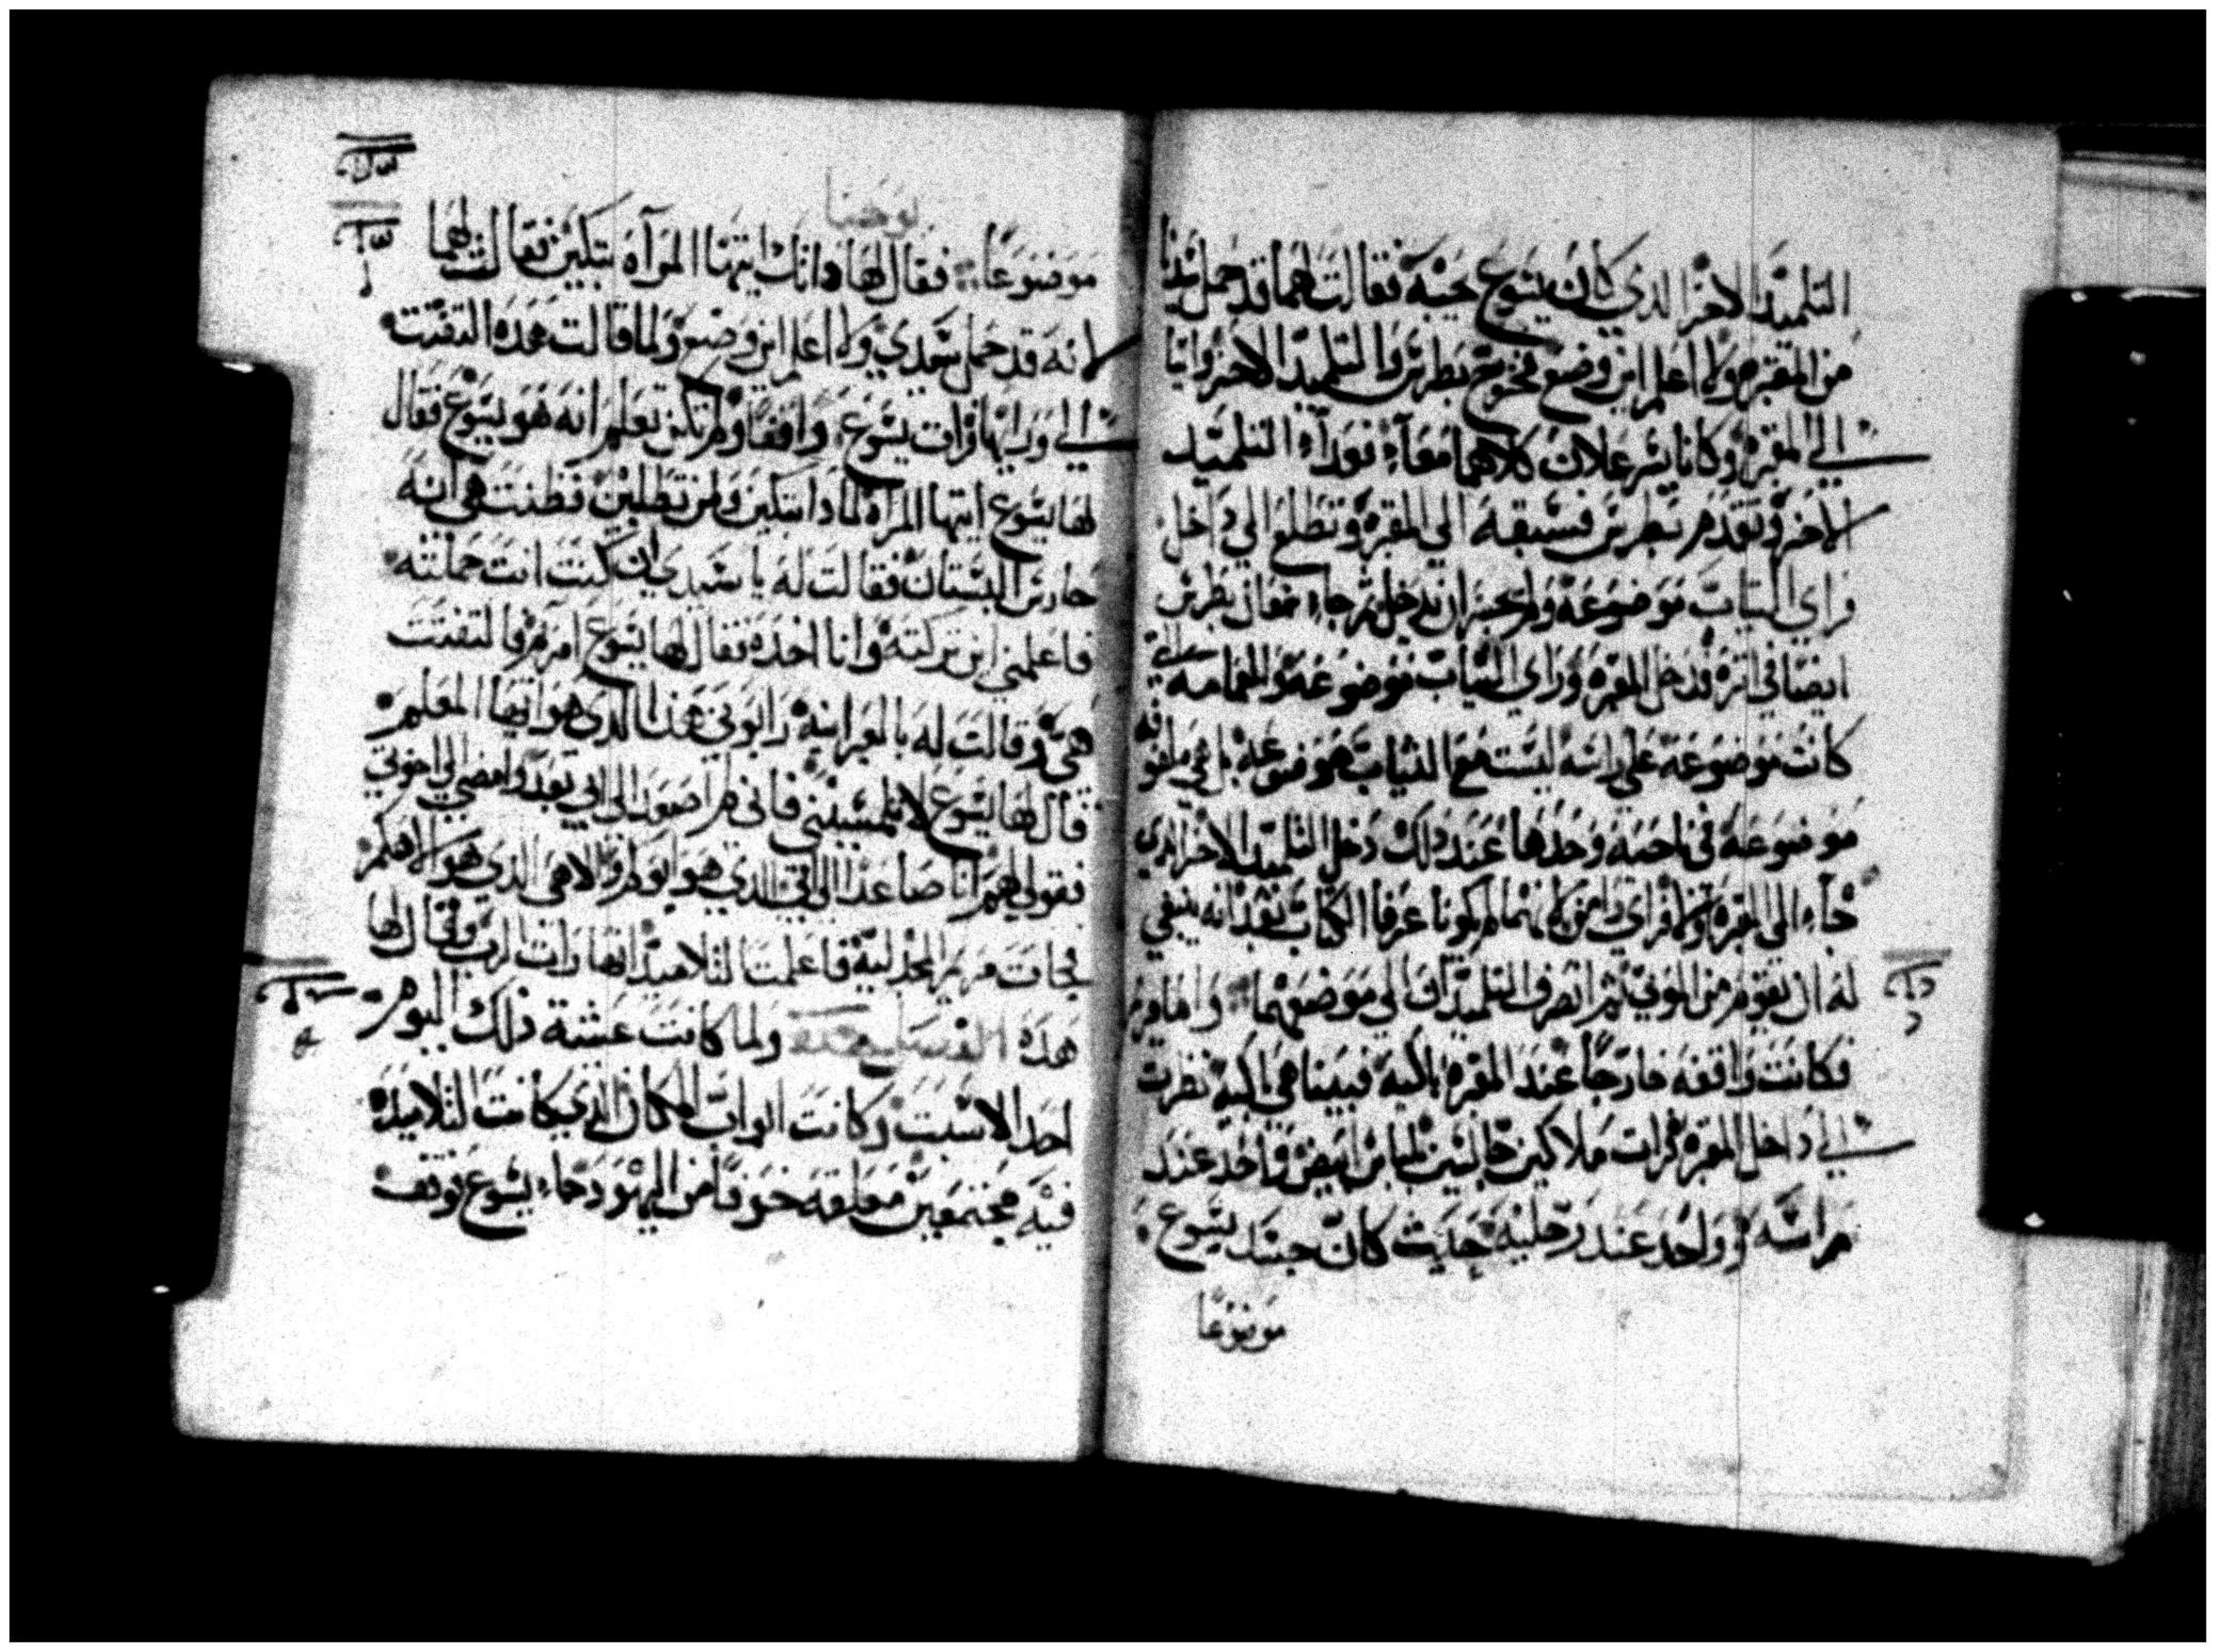 التلميد الاخر الدي كان يسوع يحبه فقالت لهما قد حمل سيدنا
من المقبره ولا اعلم اين وضع فخرج بطرس والتلميد الاخر واتيا
الي المقبره وكانا يسرعلان كلاهما معآء فورآء التلميد
الاخر وتقدم بطرس فسبقه الي المقبره وتطلع الي داخل
فراي التياب موضوعه ولم يجسر ان يدخل ثم جاء شمعان بطرس
ايضا في اثره فدخل المقبره وراي التياب موضوعه والعمامه التي
كانت موضوعه علي راسه ليست مع الثياب موضوعه بل هي ملفوفه
موضوعه في ناحيه وحدها عند دلك دخل التلميد الاخر الدي
جآء الي المقبره اولا فراي وامن لانهما لم يكونا عرفا الكتاب بعد انه ينبغي
له ان يقوم من الموتي ثم انصرف التلميدان الي موضعهما واما مريم
فكانت واقفه خارجا عند المقبره باكيه فبينا هي باكيه نظرت
الي داخل المقبره فرات ملاكين جالسين بلباس ابيض واحد عند
راسه وواحد عند رجليه حيث كان جسد يسوع
موضوعا
يوحنا
موضوعا فقال لها دانك ايتها المرآه تبكين فقالت لهما
لانه قد حمل سيدي ولا اعلم اين وضع ولما قالت هده التفتت
الي ورايها فرات يسوع واقفا ولم تكن تعلم انه هو يسوع فقال
لها يسوع ايتها المراه لمادا تبكين ولمن تطلبين فظنت هي انه
حارس البستان فقالت له يا سيدي ان كنت انت حملته
فاعلمني اين تركته وانا اخده فقال لها يسوع امريم فالتفتت
هي وقالت له بالعبرانيه رابوني هدا الدي هو ايها المعلم
قال لها يسوع لا تلمسيني فاني لم اصعد الي ابي بعد وامضي الي اخوتي
فقولي لهم انا صاعد الي ابي الدي هو ابوكم والاهي الدي هو الاهكم
فجات مريم المجدليه فاعلمت التلاميد انها رات الرب وقال لها
هده ولما كانت عشية ذلك اليوم
احد الاسبت وكانت ابواب المكان الدي كانت التلاميد
فيه مجتمعين مغلقه خوفا من اليهود جاء يسوع فوقف